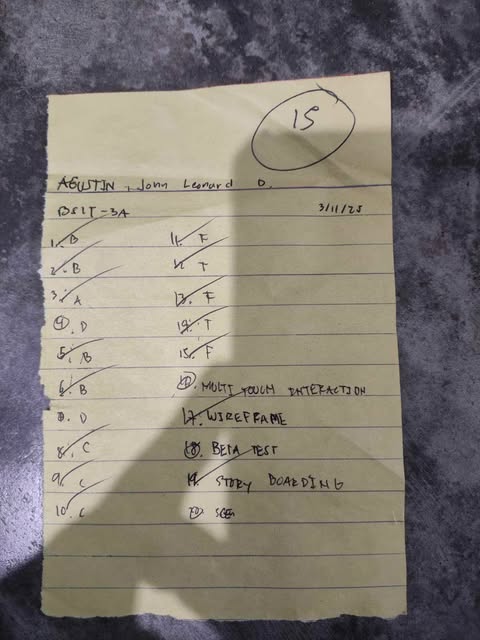 15
AGUSTIN, John Leonard D.
BSIT-3A 3/11/25
1. B
2. B
3. A
4. D
5. B
6. B
7. D
8. C
9. C
10. C
11. F
12. T
13. F
14. T
15. F
16. MULTI TOUCH INTERACTION
17. WIREFRAME
18. BETA TEST
19. STORY BOARDING
20.